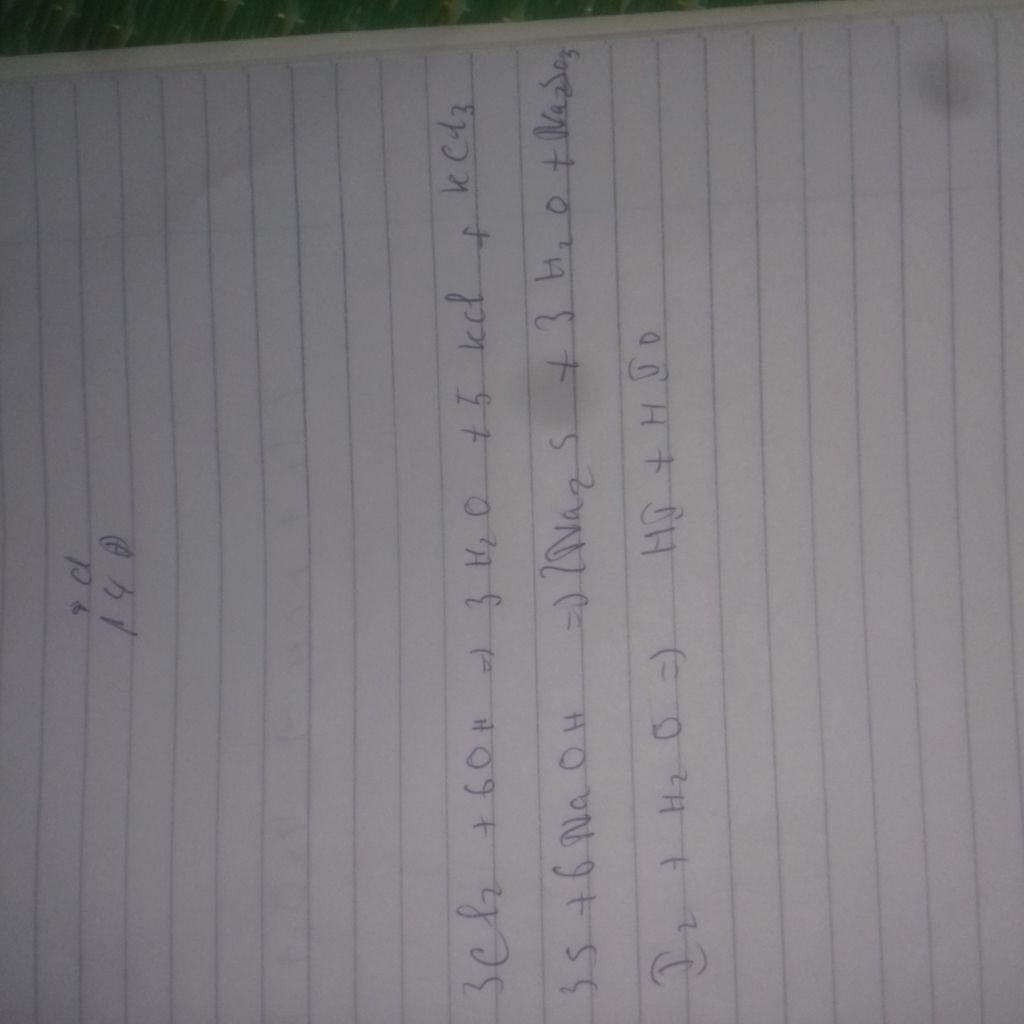 3Cl₂ + 6OH => 3 H₂O + 5 KCl + KCl3
3S + 6NaOH => 2Na₂S + 3 H₂O + Na₂SO₃
I₂ + H₂O => HI + HIO